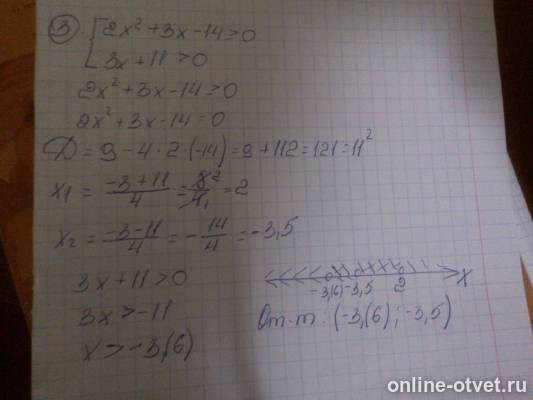 ③ { 2x² + 3x - 14 > 0
3x + 11 > 0
2x² + 3x - 14 > 0
2x² + 3x - 14 = 0
D = 9 - 4 · 2 · (-14) = 9 + 112 = 121 = 11²
x₁ = (-3 + 11)/4 = 8²/4₁ = 2
x₂ = (-3 - 11)/4 = -14/4 = -3,5
3x + 11 > 0
3x > -11
x > -3,(6)
-3,(6) -3,5 2 x
От-т: (-3,(6); -3,5)
online-otvet.ru